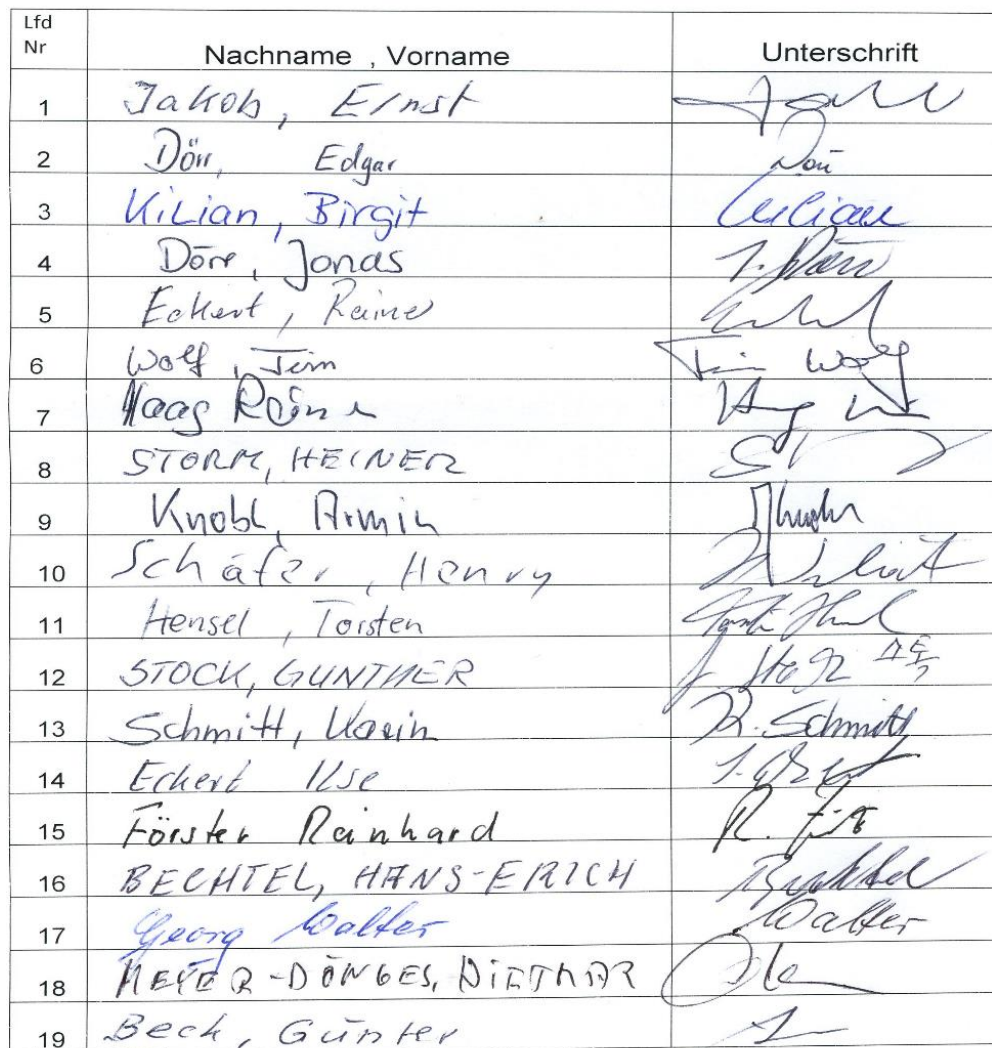 Lfd
Nr Nachname , Vorname Unterschrift
1 Jakob, Ernst
2 Dörr, Edgar
3 Kilian, Birgit Kilian
4 Dörr, Jonas J. Dörr
5 Eckert, Rainer
6 Wolf, Tim Tim Wolf
7 Haag Rainer
8 STORM, HEINER
9 Knobl, Armin
10 Schäfer, Henry
11 Hensel, Torsten
12 STOCK, GUNTHER
13 Schmitt, Karin K. Schmitt
14 Eckert Ilse
15 Förster Reinhard
16 BECHTEL, HANS-ERICH Bechtel
17 Georg Walter Walter
18 MEYER-DÖNGES, DIETMAR
19 Beck, Günter